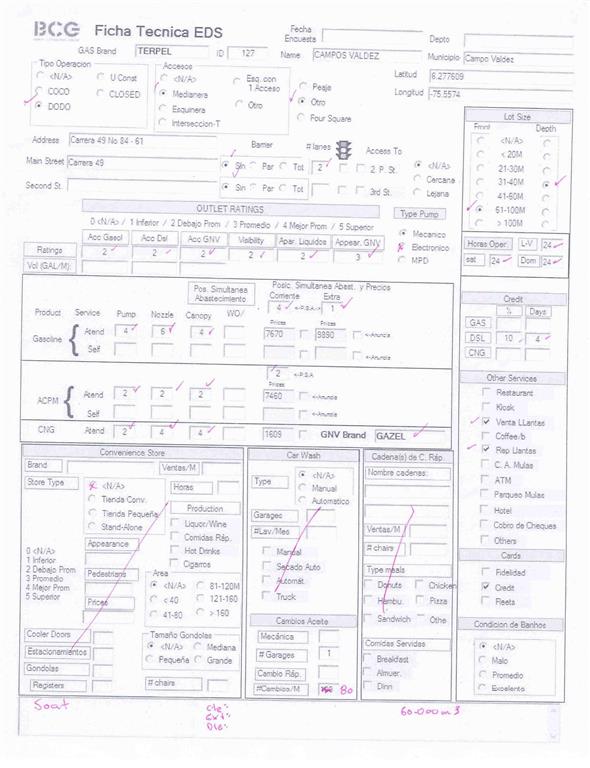 BCG Ficha Tecnica EDS
Fecha Encuesta
Depto
GAS Brand TERPEL ID 127 Name CAMPOS VALDEZ Municipio Campo Valdez
Tipo Operacion
<N/A> U Const
COCO CLOSED
DODO
Accesos
<N/A> Esq. con 1 Acceso Peaje
Medianera Otro
Esquinera Otro
Interseccion-T Four Square
Latitud 6.277609
Longitud -75.5574
Lot Size
Front Depth
<N/A>
< 20M
21-30M
31-40M
41-60M
61-100M
> 100M
Address Carrera 49 No 84 - 61
Barrier # lanes Access To
Main Street Carrera 49 Sin Par Tot 2 2 P. St.
Second St. Sin Par Tot 3rd St.
<N/A>
Cercana
Lejana
OUTLET RATINGS
0 <N/A> / 1 Inferior / 2 Debajo Prom / 3 Promedio / 4 Mejor Prom / 5 Superior
Acc Gasol Acc Dsl Acc GNV Visibility Apar. Liquidos Appear. GNV
Ratings 2 2 2 2 2 3
Vol (GAL/M):
Type Pump
Mecanico
Electronico
MPD
Horas Oper. L-V 24
sat 24 Dom 24
Pos. Simultanea Abastecimiento
Posic. Simultanea Abast. y Precios
Corriente Extra
4 <-P.S.A-> 1
Product Service Pump Nozzle Canopy WO/ Prices Prices
Gasoline Atend 4 6 4 7670 9890 <-Anuncia
Self <-Anuncia
2 <-P.S.A
Prices
ACPM Atend 2 2 2 7460 <-Anuncia
Self <-Anuncia
CNG Atend 2 4 4 1609 GNV Brand GAZEL
Credit
% Days
GAS
DSL 10 4
CNG
Other Services
Restaurant
Kiosk
Venta LLantas
Coffee/b
Rep Llantas
C. A. Mulas
ATM
Parqueo Mulas
Hotel
Cobro de Cheques
Others
Cards
Fidelidad
Credit
Fleets
Condicion de Banhos
<N/A>
Malo
Promedio
Excelente
Convenience Store
Brand Ventas/M
Store Type
<N/A>
Tienda Conv.
Tienda Pequeña
Stand-Alone
Horas
Production
Liquor/Wine
Comidas Ráp.
Hot Drinks
Cigarros
Appearance
0 <N/A>
1 Inferior
2 Debajo Prom
3 Promedio
4 Mejor Prom
5 Superior
Pedestrians
Prices
Area
<N/A> 81-120M
< 40 121-160
41-80 > 160
Cooler Doors
Estacionamientos
Gondolas
Registers
Tamaño Gondolas
<N/A> Mediana
Pequeña Grande
# chairs
Car Wash
Type
<N/A>
Manual
Automatico
Garages
#Lav/Mes
Manual
Secado Auto
Automát.
Truck
Cambios Aceite
Mecánica
# Garages 1
Cambio Ráp.
#Cambios/M 80
Cadena(s) de C. Ráp.
Nombre cadenas:
Ventas/M
# chairs
Type meals
Donuts Chicken
Hambu. Pizza
Sandwich Othe
Comidas Servidas
Breakfast
Almuer.
Dinn
Soat
Cte:
Ext:
Die:
60.000 m3